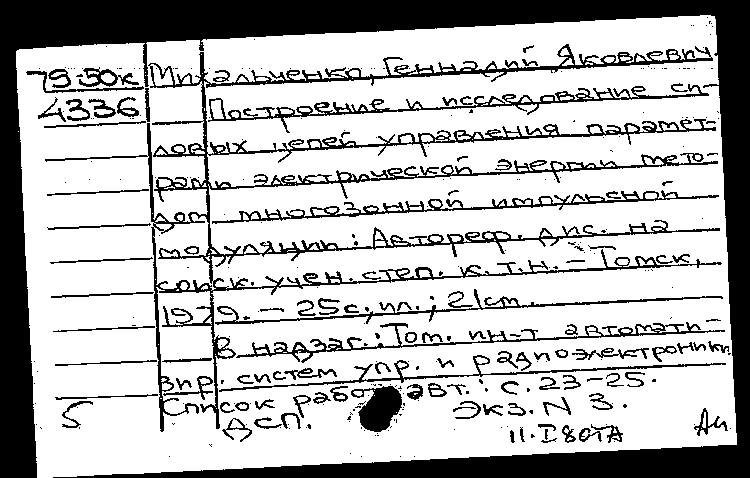 79-50к Михальченко, Геннадий Яковлевич.
4336 Построение и исследование си-
ловых цепей управления парамет-
рами электрической энергии мето-
дом многозонной импульсной
модуляции : Автореф. дис. на
соиск. учен. степ. к.т.н. – Томск,
1979. – 25с.; ил.; 21см.
В надзаг.: Том. ин-т автомати-
зир. систем упр. и радиоэлектроники
Список работ авт.: с. 23-25.
5 ДСП. Экз. N 3.
11.I 80